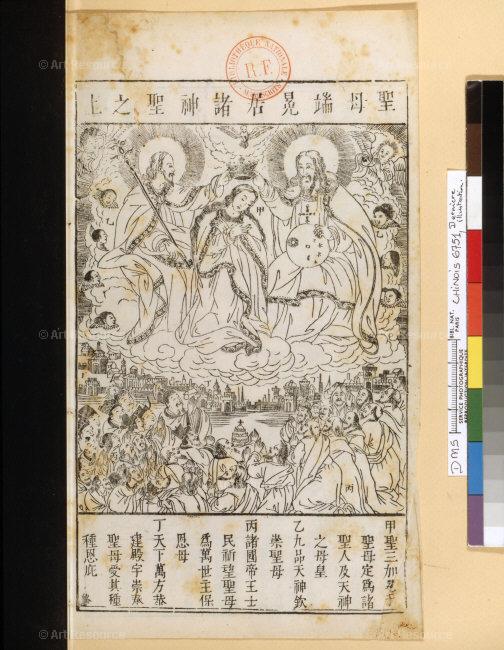 聖母端冕居諸神聖之上
BIBLIOTHÈQUE NATIONALE
R.F.
甲
乙
丙
甲聖三加冕于
聖母定爲諸
聖人及天神
之母皇
乙九品天神欽
崇聖母
丙諸國帝王士
民祈望聖母
爲萬世主保
恩母
丁天下萬方恭
建殿宇崇奉
聖母愛其種
種恩庇
DMS
BIBL. NAT.
PARIS
SERVICE PHOTOGRAPHIQUE
CHINOIS 6751, Dernière
illustration
Art Resource